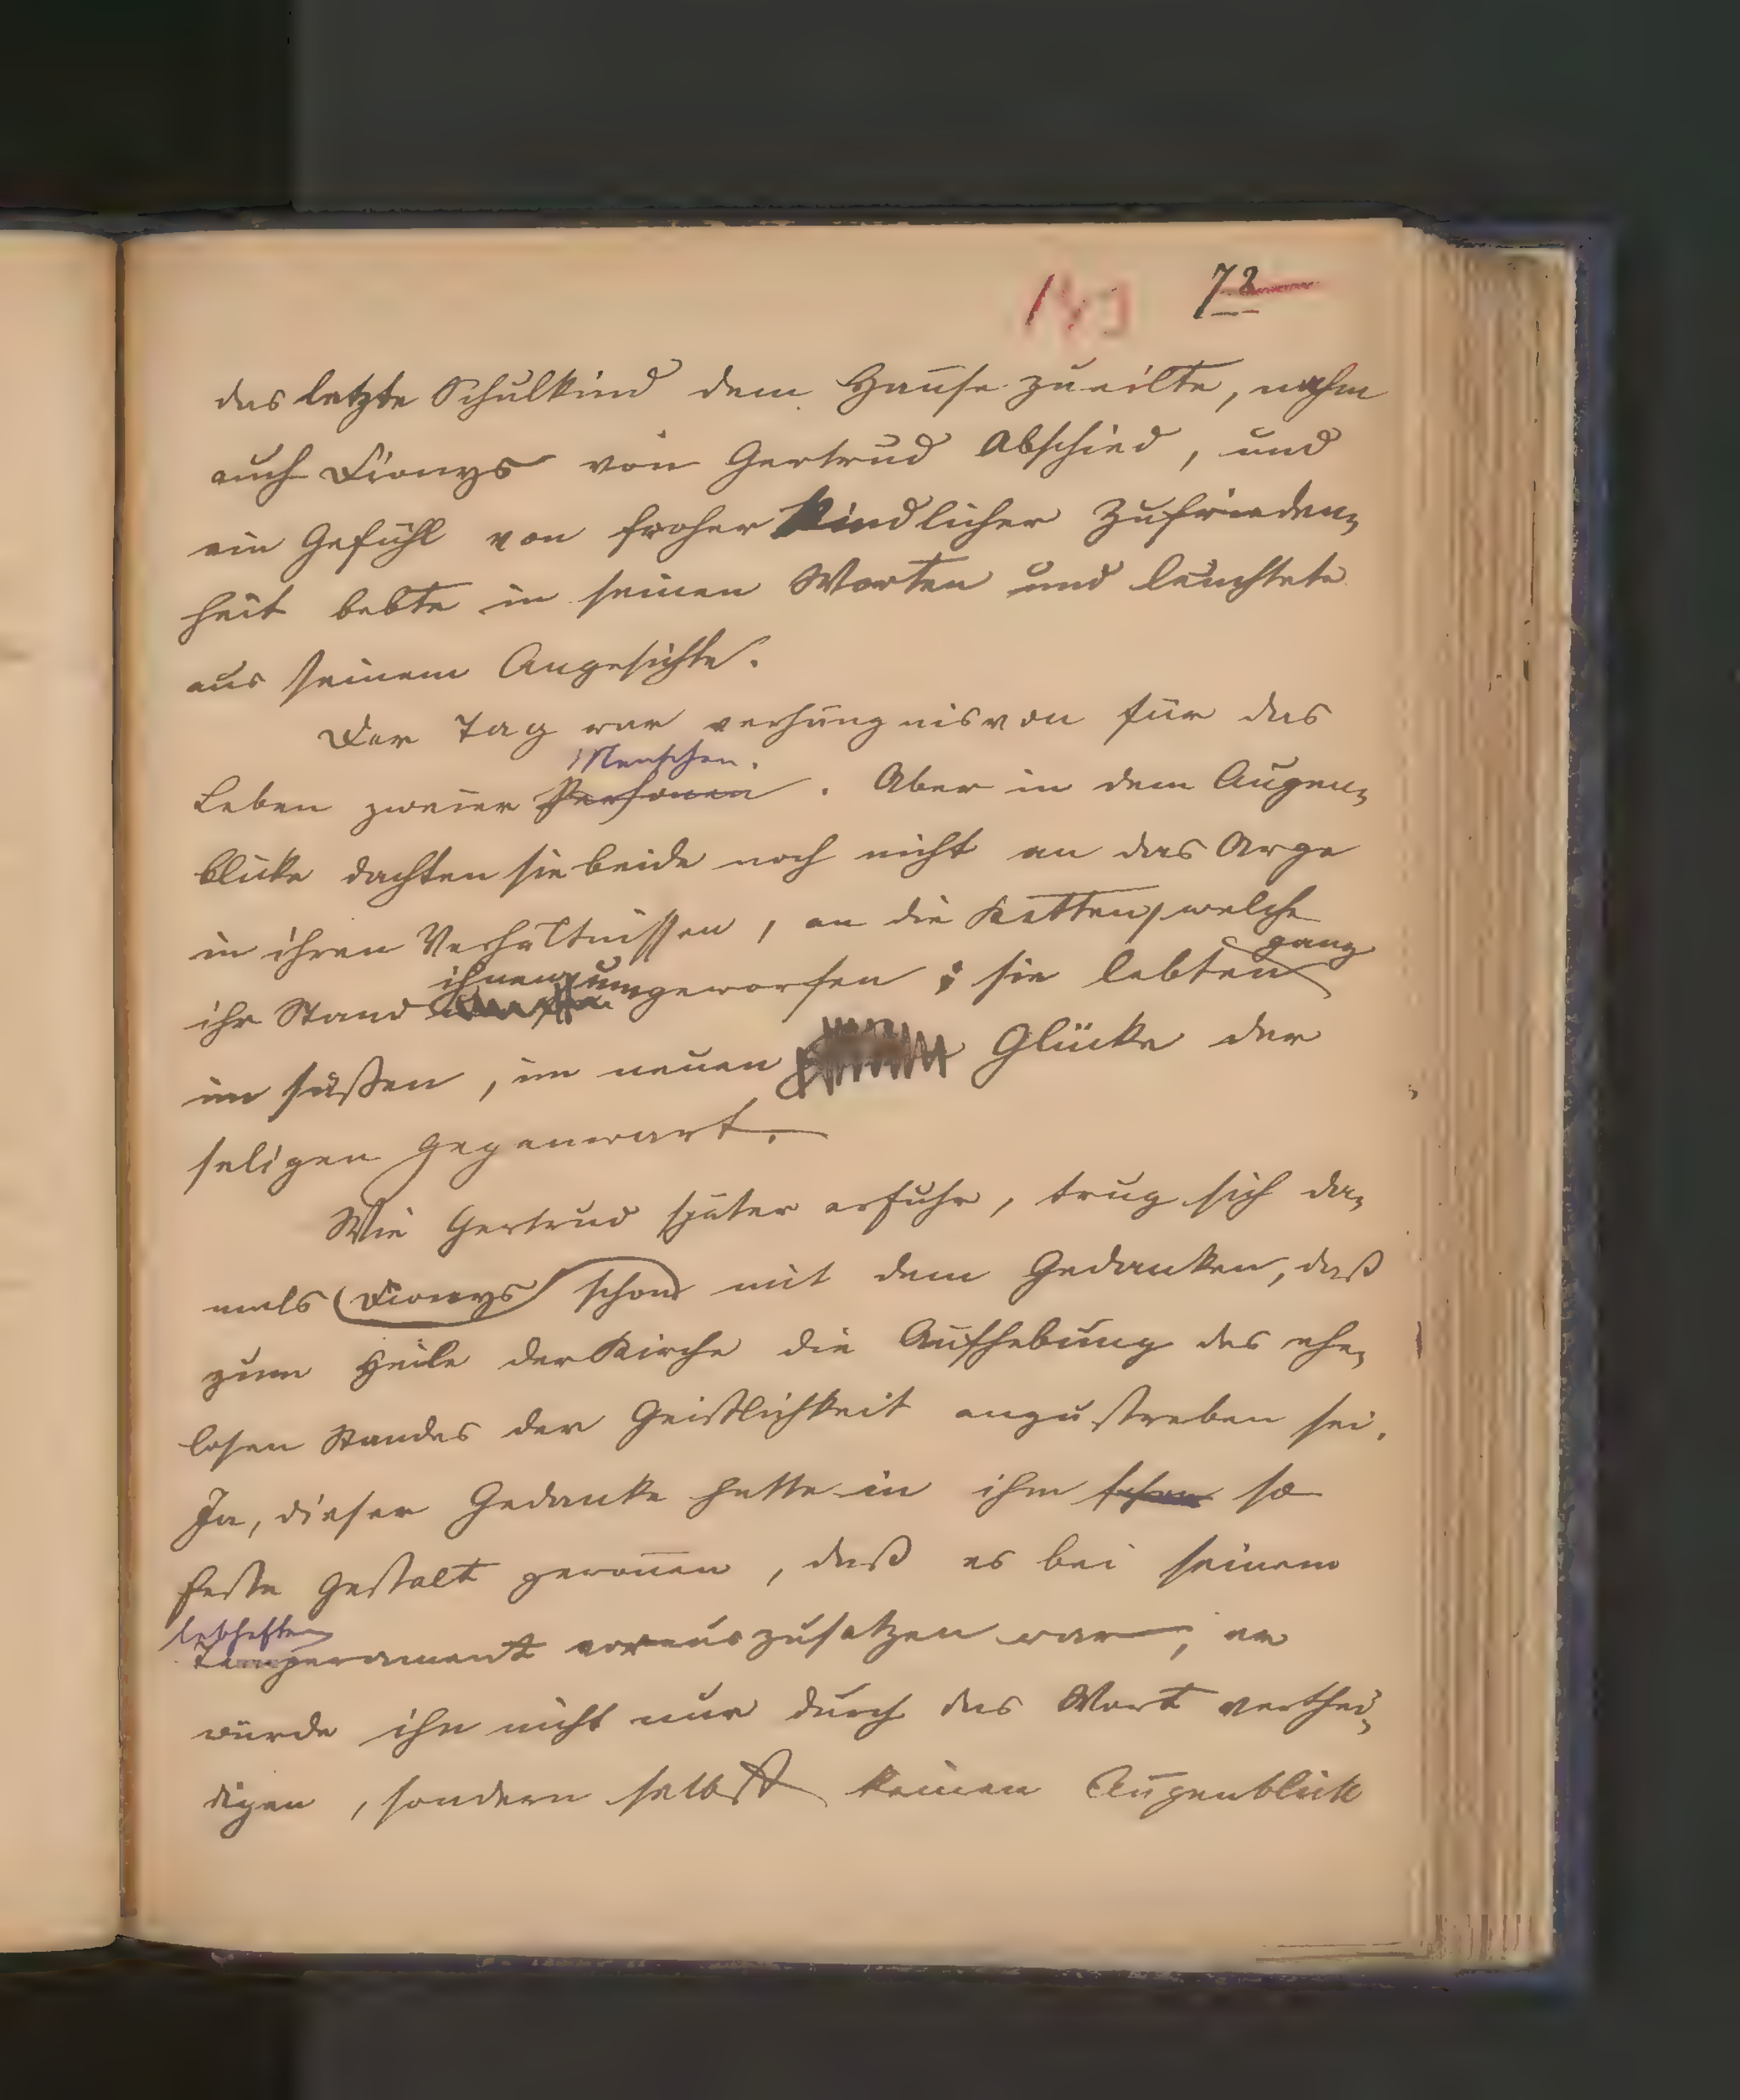 78
das letzte Schulkind dem Hause zueilte, nahm
auch Dionys von Gertrud Abschied, und
ein Gefühl von froher kindlicher Zufrieden-
heit bebte in seinen Worten und leuchtete
aus seinem Angesichte.
Der Tag war verhängnisvon für das
Menschen.
Leben zweier Personen. Aber in dem Augen-
blicke dachten sie beide noch nicht an das Arge
in ihren Verhältnissen, an die Ketten, welche
ganz
ihnen um
ihr Stand geworfen; sie lebten
im süßen, im neuen Glücke der
seligen Gegenwart.
Wie Gertrud später erfuhr, trug sich da-
mals Dionys schon mit dem Gedanken, daß
zum Heile der Kirche die Aufhebung des ehe-
losen Standes der Geistlichkeit anzustreben sei.
Ja, dieser Gedanke hatte in ihm schon so
feste Gestalt gewon̄en, daß es bei seinem
lebhaften
Temperament vorauszusetzen war, er
würde ihn nicht nur durch das Wort verthei-
digen, sondern selbst keinen Augenblick